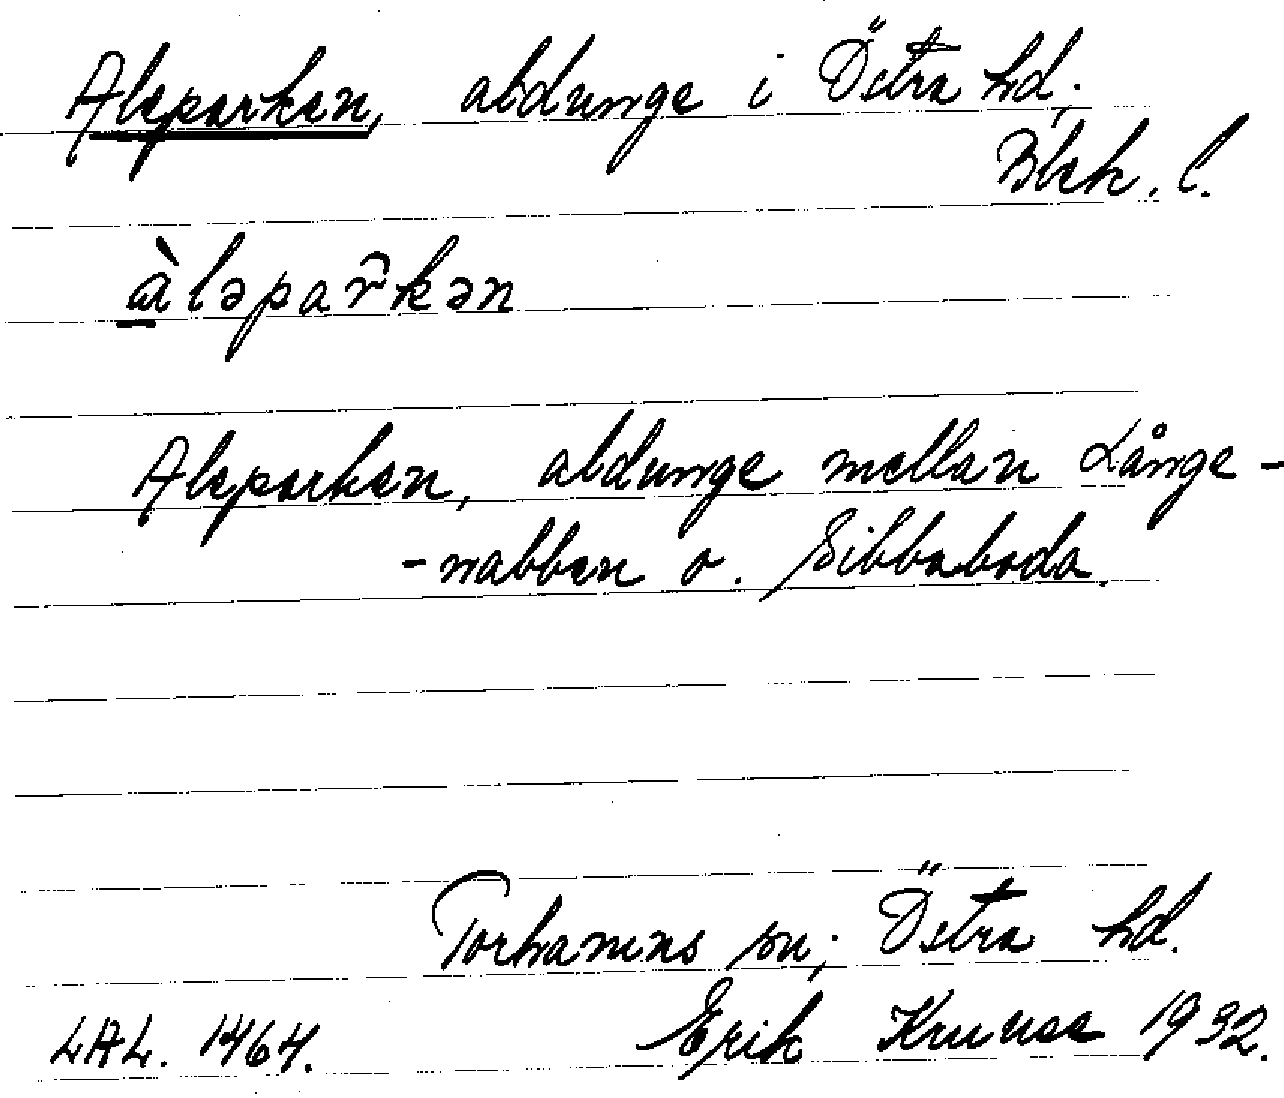 Aleparken, aldunge i Östra hd;
Blek. l.
àləpar̂kən
Aleparken, aldunge mellan Långe-
-nabben o. Sibbaboda.
Torhamns sn; Östra hd.
LAL. 1464. Erik Kruuse 1932.